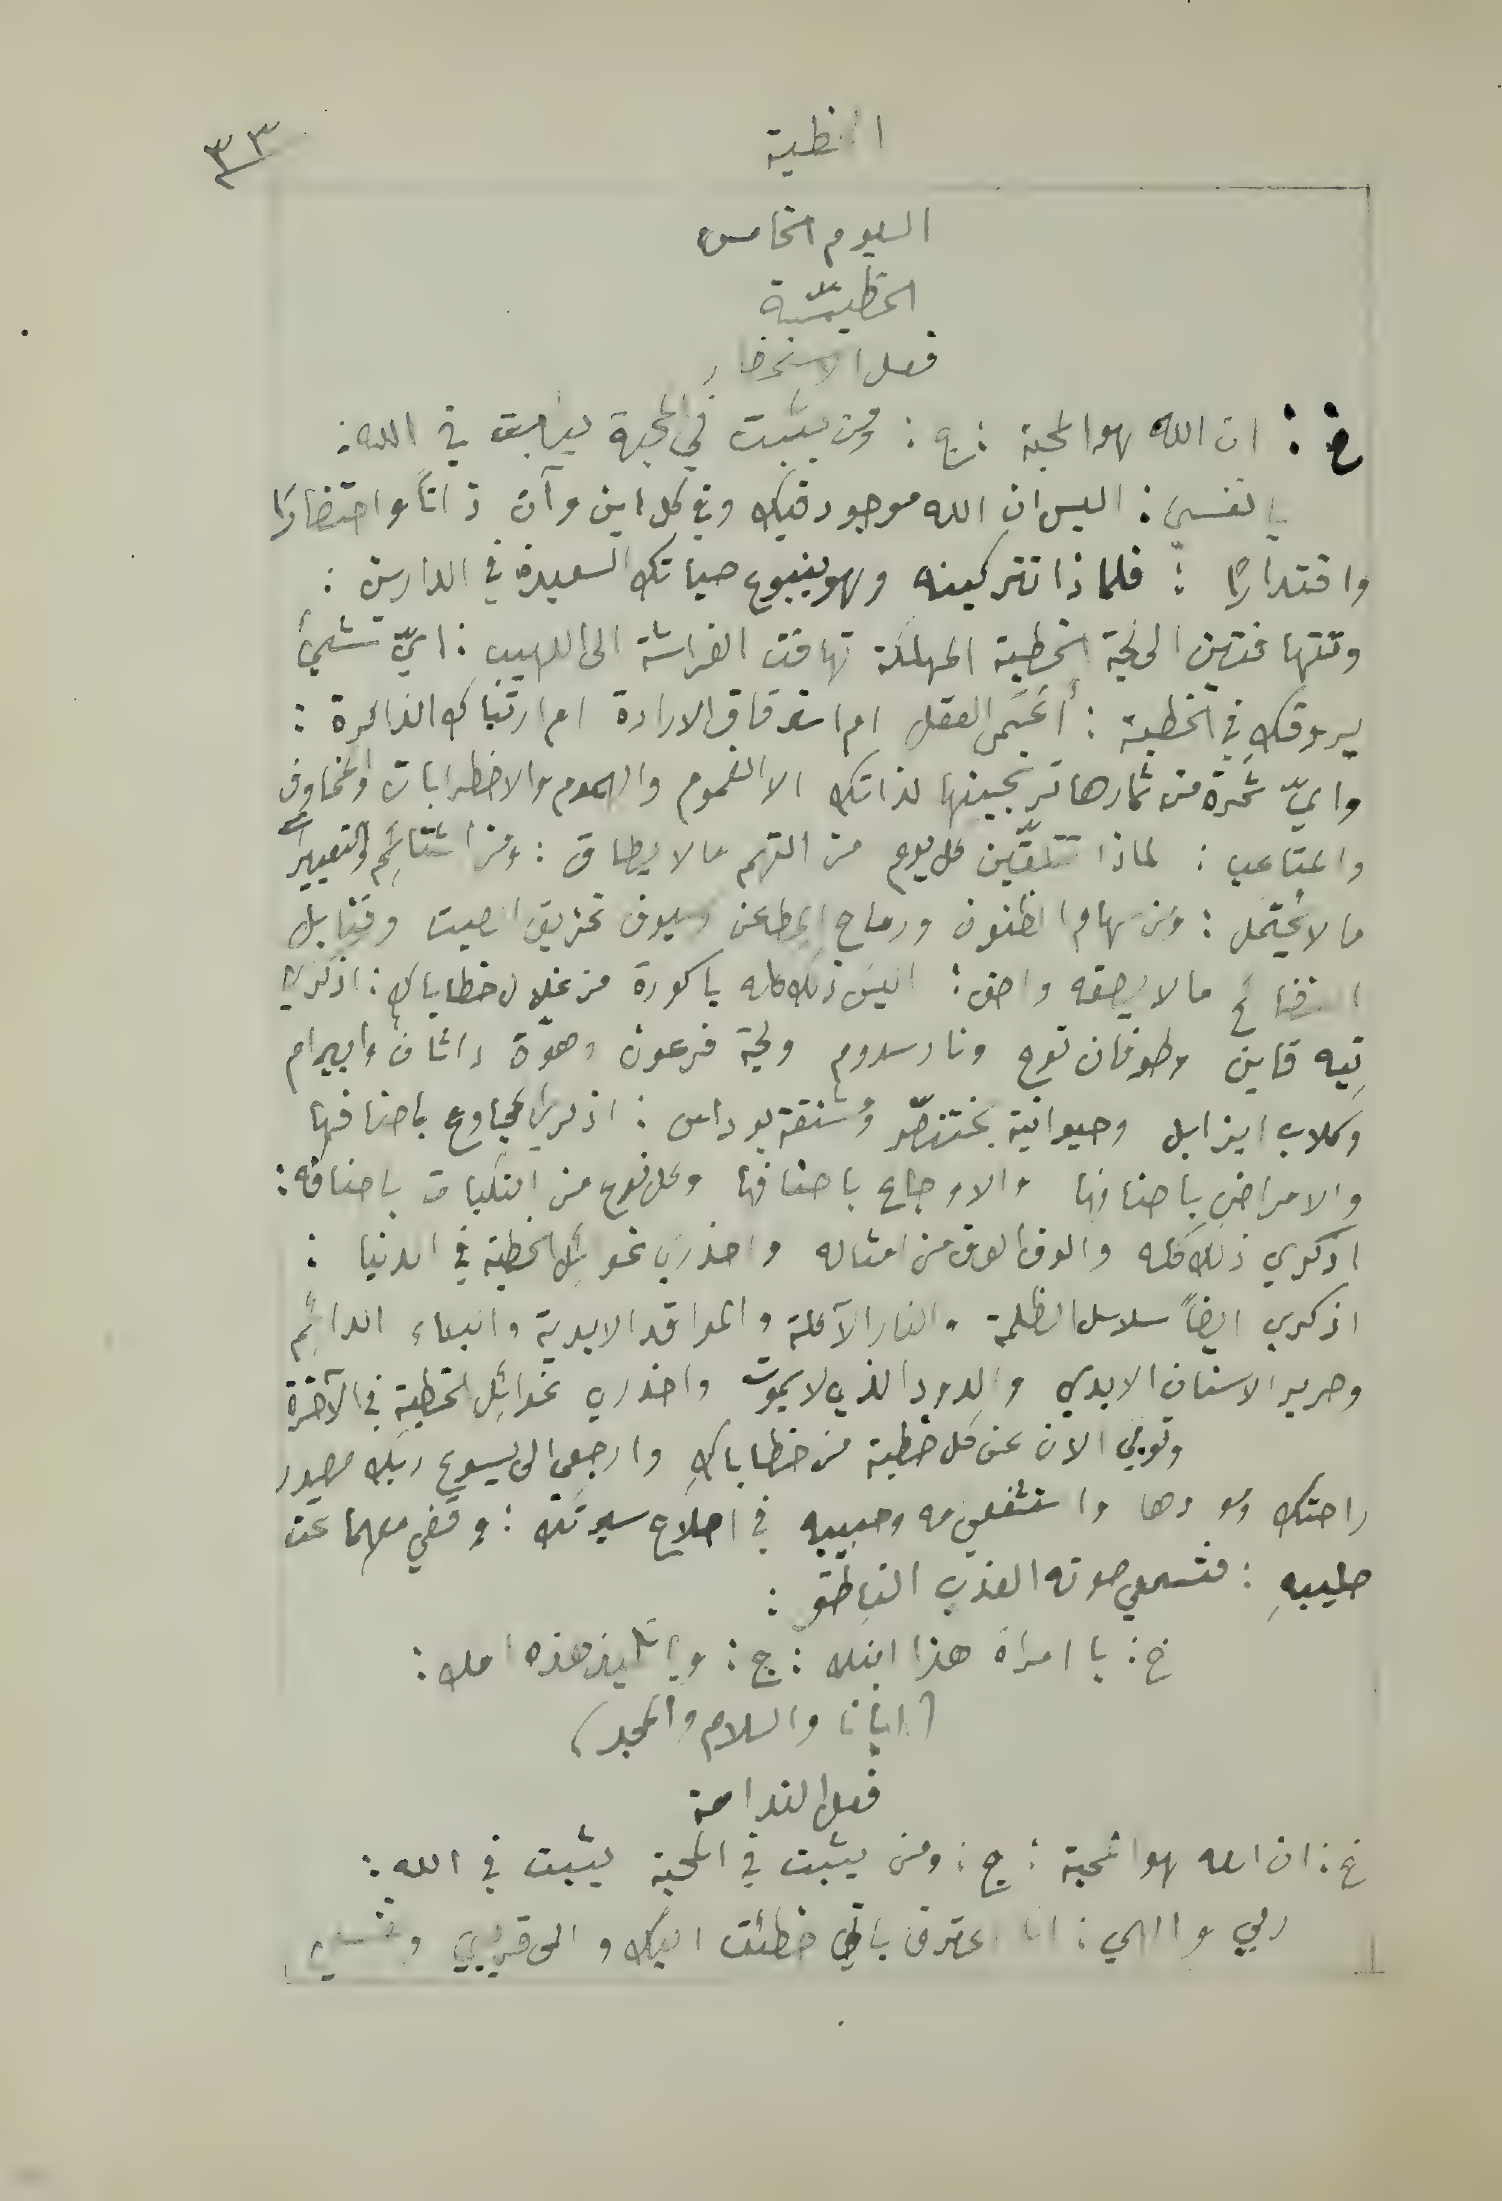 الخطية
٣٣
اليوم الخامس
الخطيّة
فعل الاستحضار
خ : ان الله هو المحبة : ج : ومن يثبت في المحبة يثبت في الله :
يا نفسي : اليس ان الله موجود فيك وفي كل اين وآن ذاتًا واحتضارًا
واقتدارًا : فلماذا تتركينه وهو ينبوع حياتك السعيدة في الدارين :
وتتهافتين الى لجة الخطية المهلكة تهافت الفراشة الى اللهيب : ايّ شيء
يروقكِ في الخطية : أعمى العقل ام استرقاق الارادة ام ارتباك الذاكرة :
وايّ ثمرة من ثمارها تجنينها لذاتك الا الغموم والهموم والاضطرابات والمخاوف
والمتاعب : لماذا تتلقّين كل يوم من التهم ما لا يطاق : ومن الشتائم والتعييرات
ما لا يحتمل : ومن سهام الظنون ورماح المطاعن وسيوف تمزيق الصيت وقنابل
الفضائح ما لا يصفه واصف : اليس ذلك كله باكورة من غلال خطاياكِ : اذكري
تيه قاين وطوفان نوح ونار سدوم ولجة فرعون وهوّة داثان وابيرام
وكلاب ايزابل وحيوانية بختنصّر ومشنقة يوداس : اذكري المجاوع باصنافها
والامراض باصنافها والاوجاع باصنافها وكل نوع من النكبات باصنافه :
اذكري ذلك كله والوف الوف من امثاله واحذري غوائل الخطية في الدنيا :
اذكري ايضاً سلاسل الظلمة والنار الآكلة والمواقد الابدية والبكاء الدائم
وصرير الاسنان الابدي والدود الذي لا يموت واحذري غوائل الخطية في الآخرة
وتوبي الان عن كل خطية من خطاياكِ وارجعي الى يسوع ربك مصدر
راحتك وموردها واستشفعي امه وحبيبه في اصلاح سيرتك : وقفي معهما تحت
صليبهِ : فتسمعي صوته العذب الناطق :
خ : يا امرأة هذا ابنك : ج : ويا تلميذ هذه امك :
(ابانا والسلام والمجد)
فعل الندامة
خ : ان الله هو المحبة : ج : ومن يثبت في المحبة يثبت في الله :
ربي والهي : انا اعترف باني خطئت اليك والى قريبي ونفسي